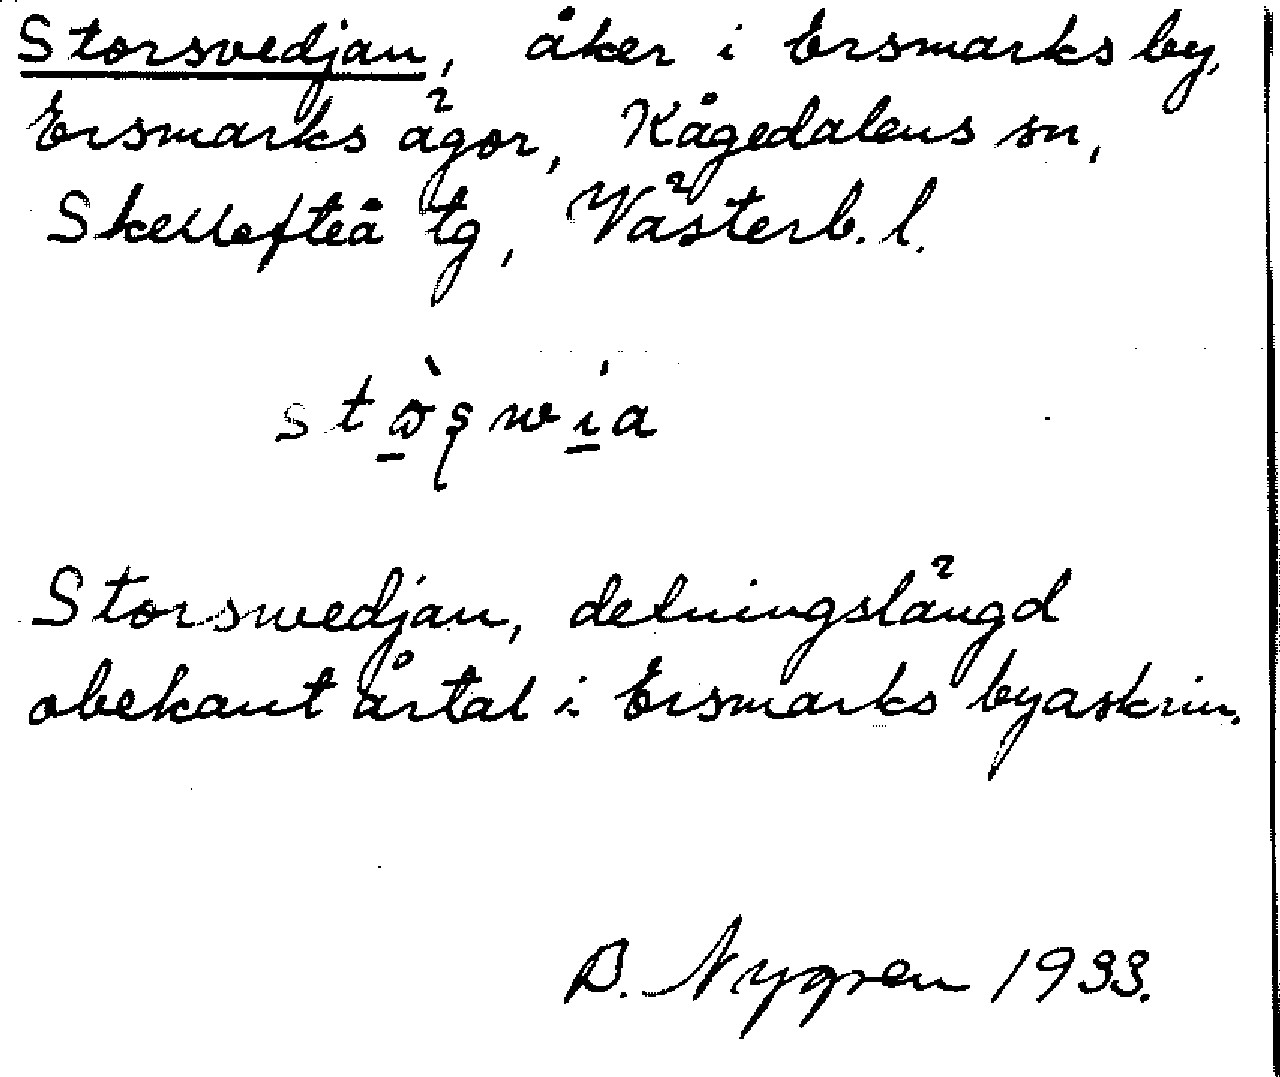 Storsvedjan, åker i Ersmarks by,
Ersmarks ägor, Kågedalens sn,
Skellefteå tg, Västerb. l.
Storswedjan, delningslängd
obekant årtal i Ersmarks byaskrin.
B. Nygren 1933.